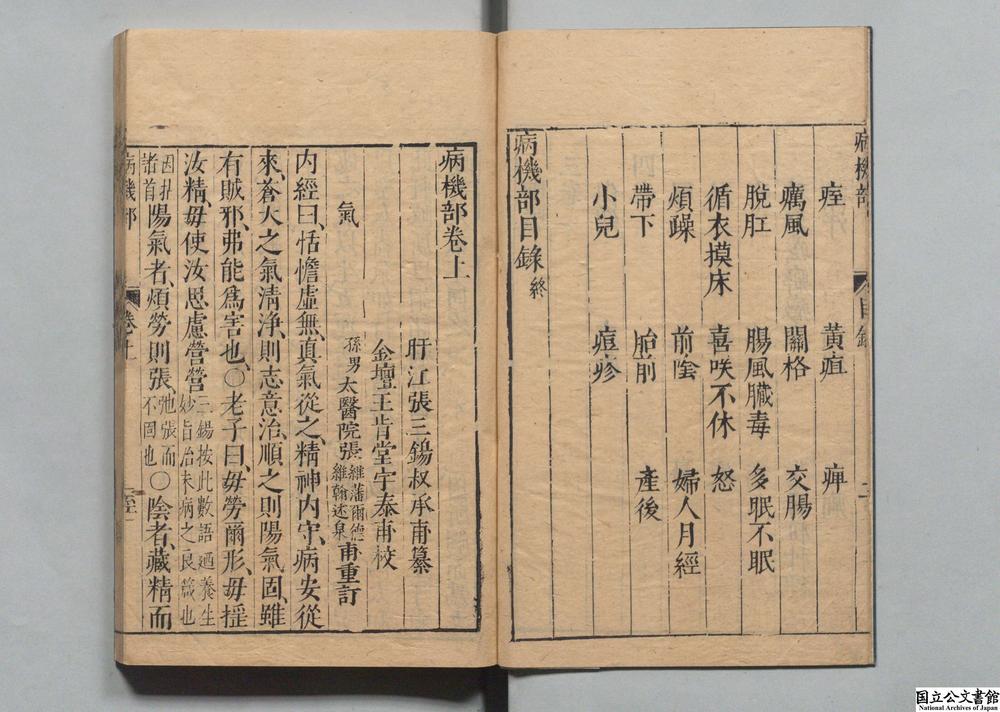 病機部 目錄 二
痓 黃疸 痺
癘風 關格 交腸
脫肛 腸風臟毒 多眠不眠
循衣摸床 喜咲不休 怒
煩躁 前陰 婦人月經
帶下 胎前 產後
小兒 痘疹
病機部目錄終
病機部卷上
盱江張三錫叔承甫纂
金壇王肯堂宇泰甫校
孫男太醫院張維藩爾德維翰述泉甫重訂
氣
內經曰、恬憺虛無、真氣從之、精神內守、病安從
來、蒼天之氣清淨、則志意治、順之則陽氣固、雖
有賊邪、弗能為害也、○老子曰、毋勞爾形、毋搖
汝精、毋使汝思慮營營三錫按此數語迺養生妙旨治未病之良箴也
諸首陽氣者、煩勞則張、弛張而不固也○陰者、藏精而
病機部 卷上
国立公文書館
National Archives of Japan